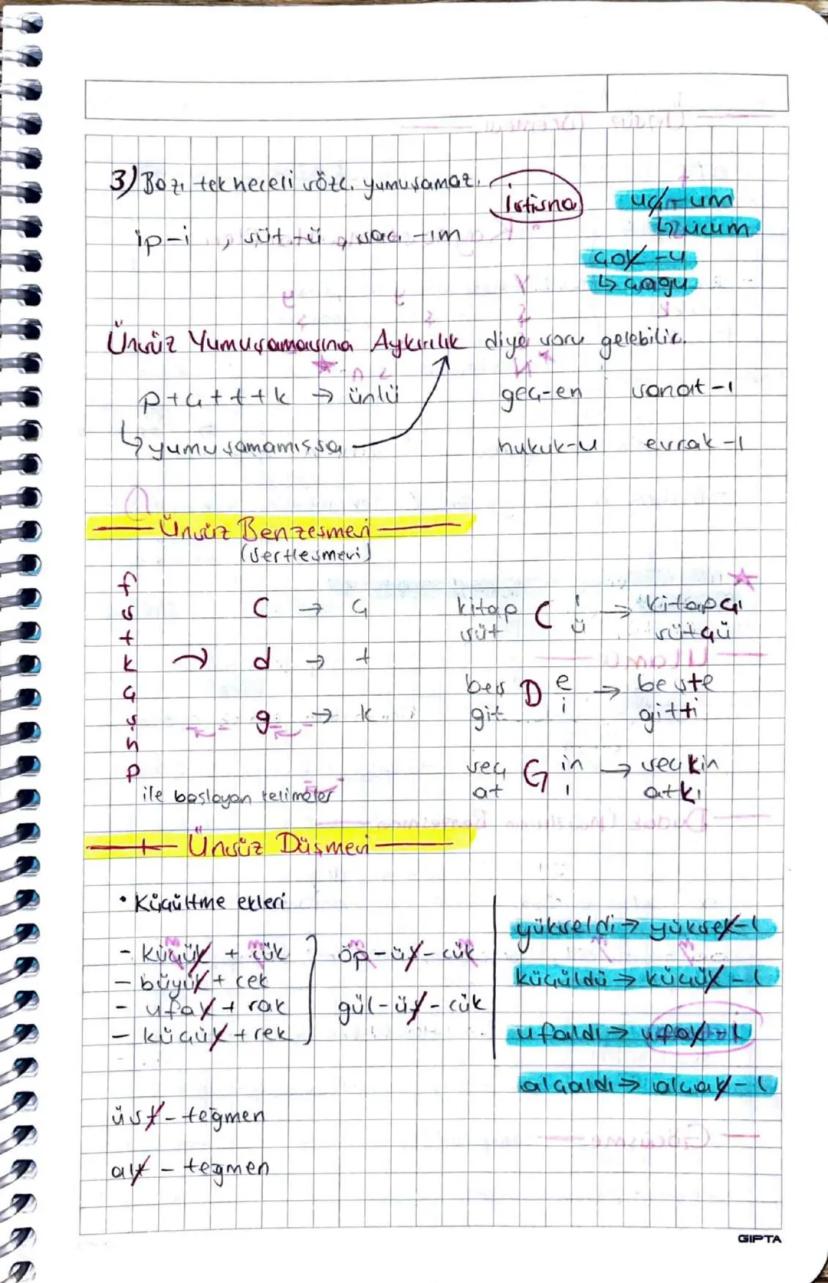 3) Bazı tek heceli sözc. yumuşamaz.
İstisna
uç-um
↳ucum
ip-i, süt-ü, saç-ım
çok-u
↳çoğu
Ünsüz Yumuşamasına Aykırılık diye soru gelebilir.
p+ç+t+k → ünlü
geç-en sanat-ı
↳yumuşamamışsa
hukuk-u evrak-ı
Ünsüz Benzeşmesi
(Sertleşmesi)
f
s
t
k
ç
ş
h
p
c → ç
d → t
g → k
ile başlayan kelimeler
kitap C ı → kitapçı
süt ü sütçü
beş D e → beşte
git i gitti
seç G in → seçkin
at ı atkı
Ünsüz Düşmesi
• Küçültme ekleri
- küçük + cük
- büyük + cek
- ufak + rak
- küçük + rek
öp-üş-cük
gül-üş-cük
yükseldi → yüksek-l
küçüldü → küçük-l
ufaldı → ufak-l
alçaldı → alçak-l
üst-teğmen
alt-teğmen
GIPTA